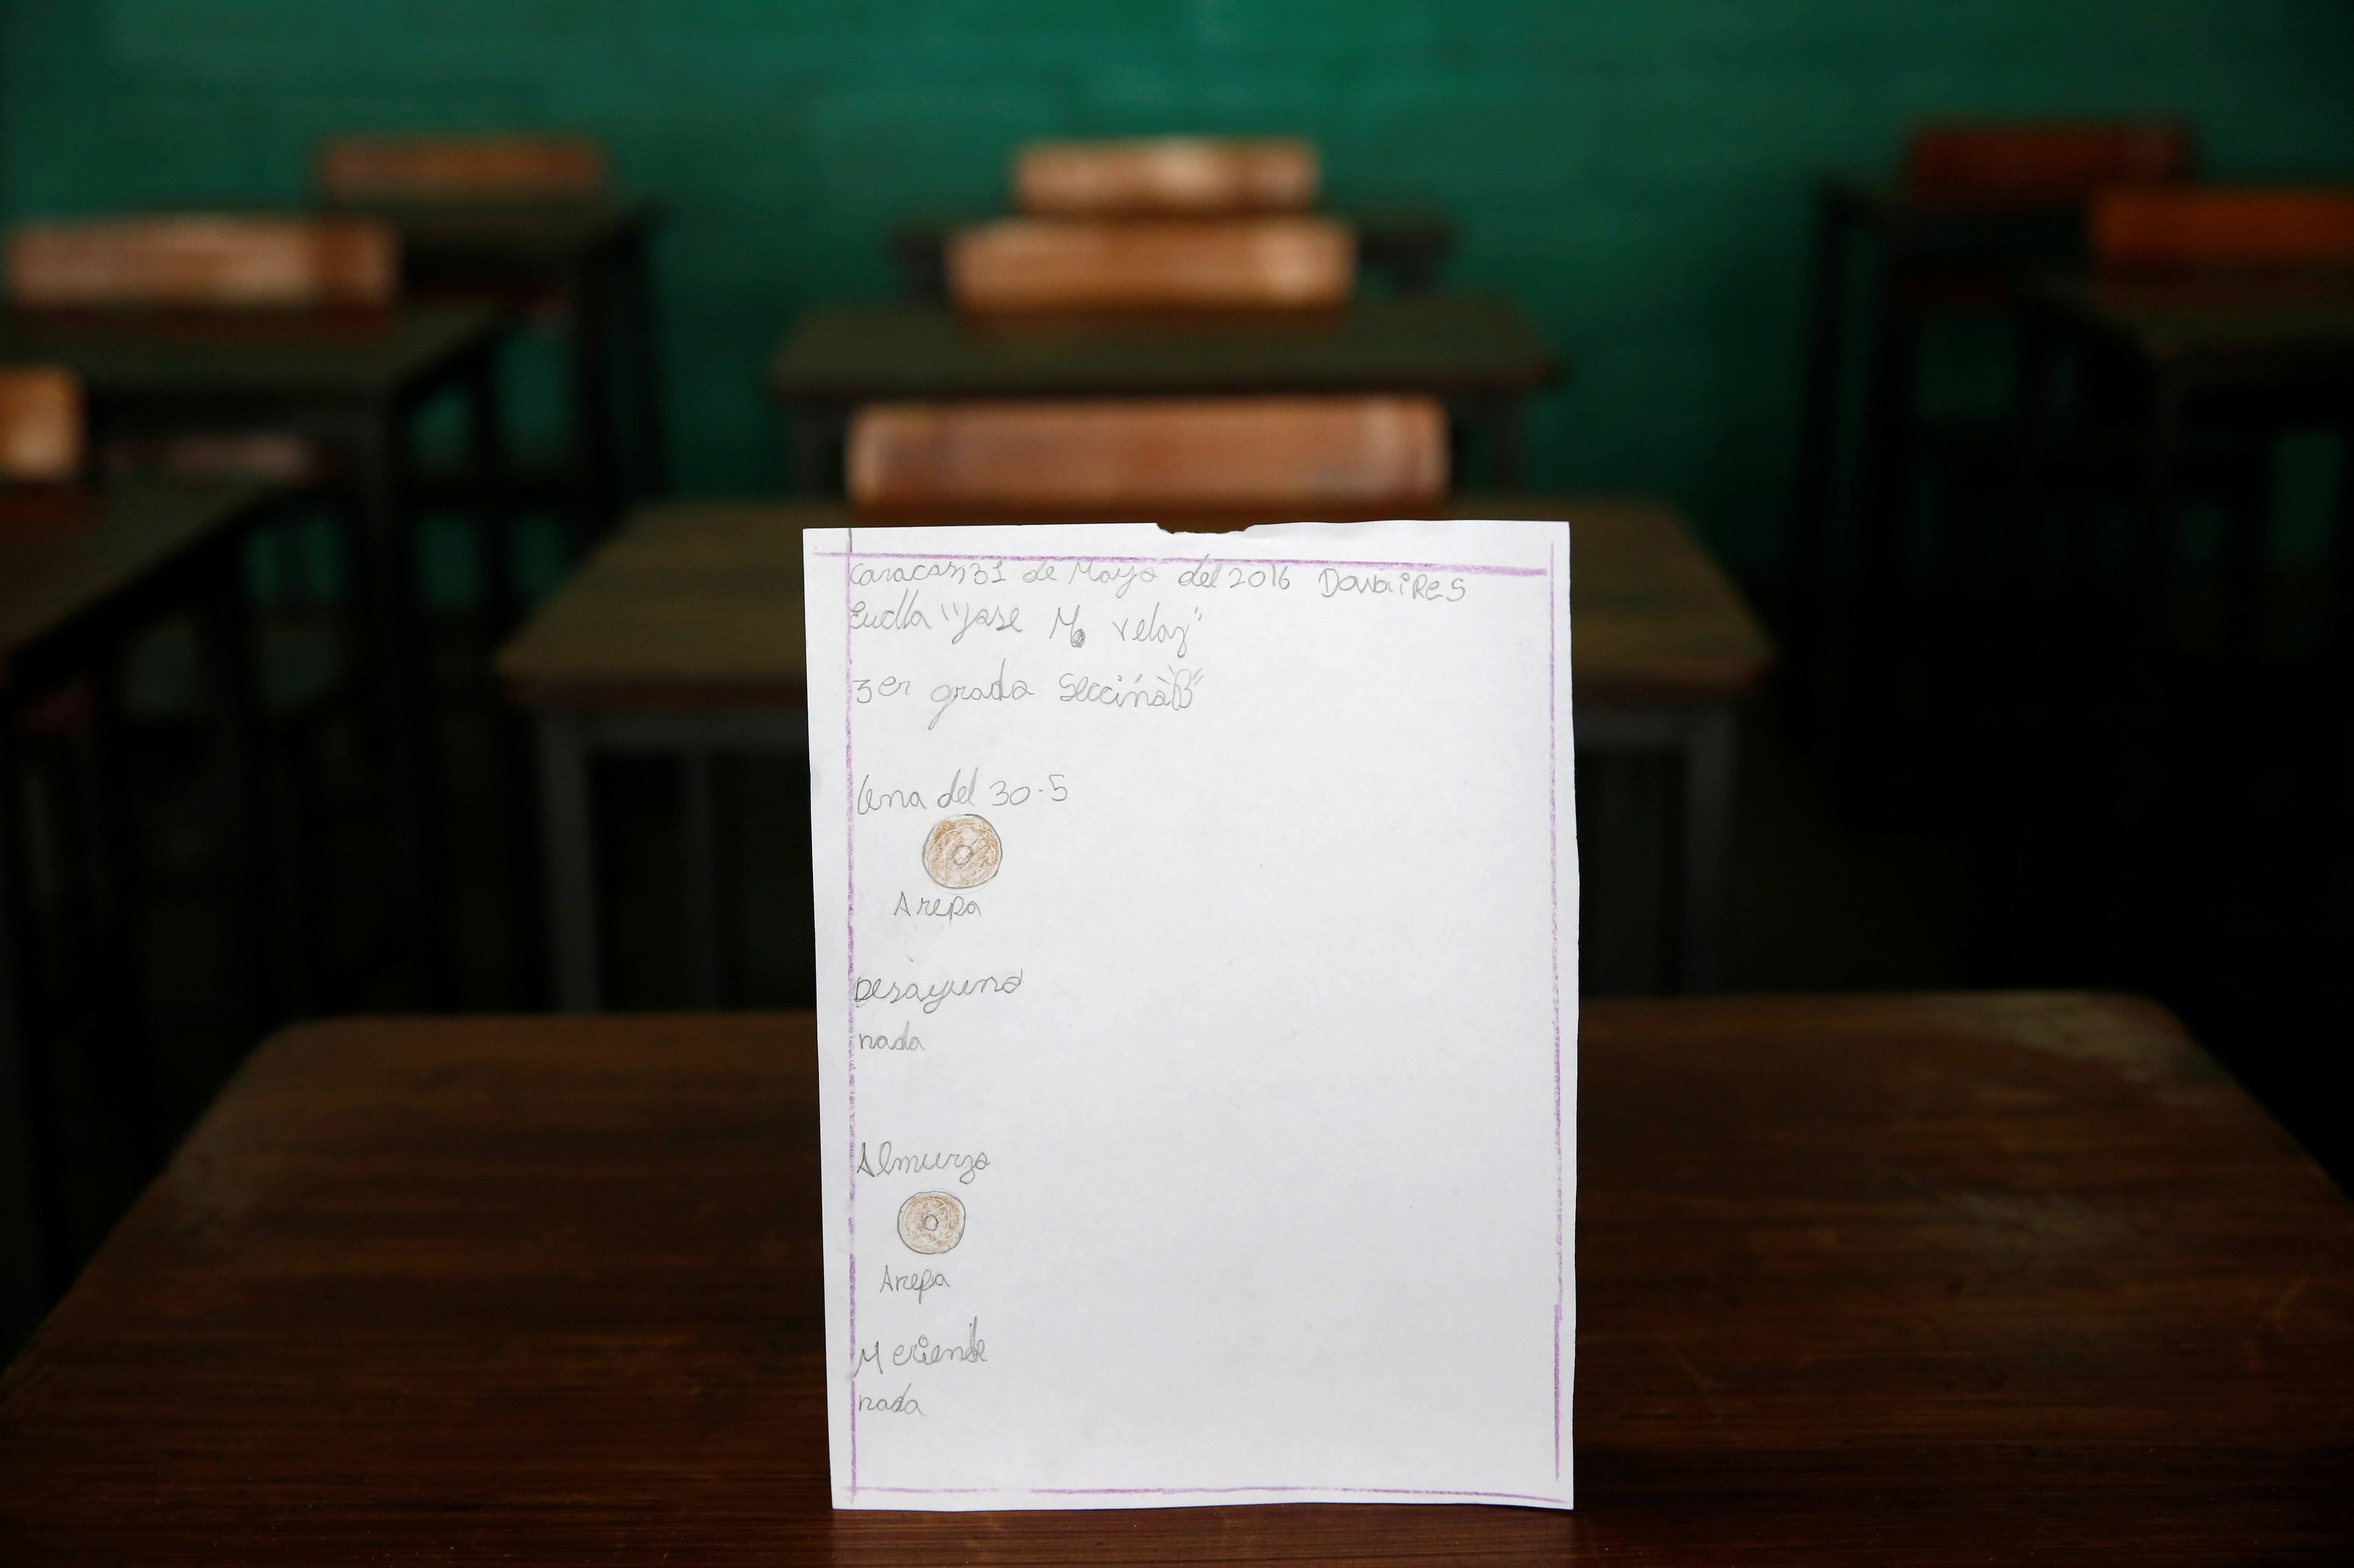 Caracas 31 de Mayo del 2016 DovaiRes
Eudla "Jose M. velaz"
3er grado Seccina "B"
Cena del 30-5
Arepa
Desayuno
nada
Almurzo
Arepa
Meriende
nada